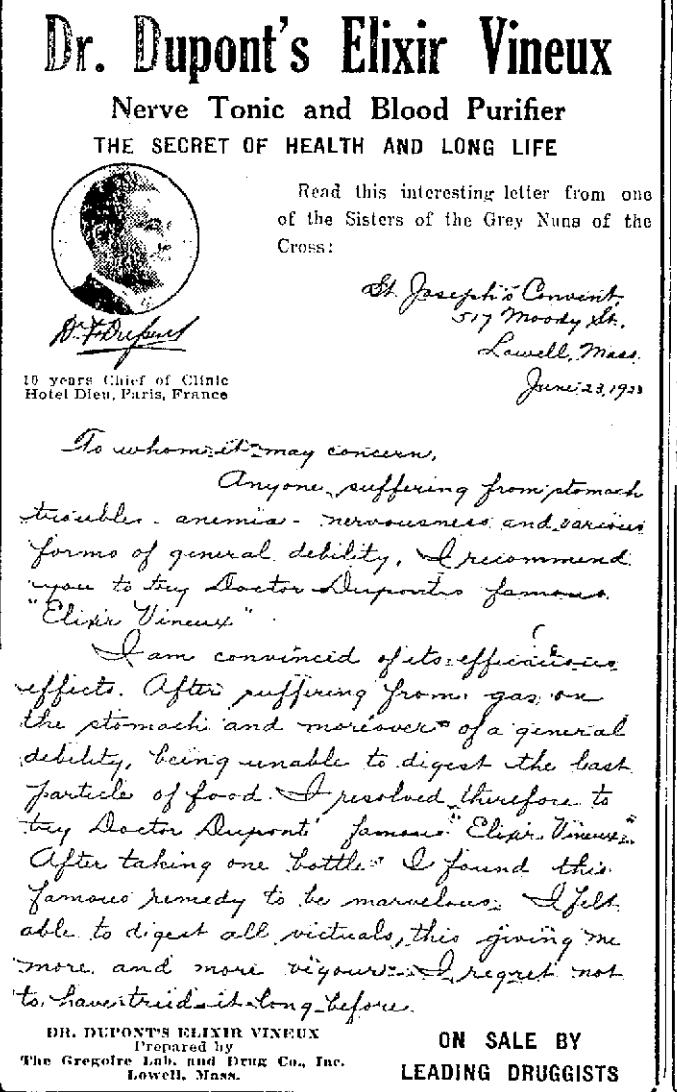 Dr. Dupont's Elixir Vineux
Nerve Tonic and Blood Purifier
THE SECRET OF HEALTH AND LONG LIFE
Read this interesting letter from one
of the Sisters of the Grey Nuns of the
Cross:
St. Joseph's Convent,
517 Moody St.
Lowell, Mass.
June 23, 1923
Dr. F. Dupont
10 years Chief of Clinic
Hotel Dieu, Paris, France
To whom it may concern,
Anyone suffering from stomach
troubles - anemia - nervousness and various
forms of general debility, I recommend
you to try Doctor Dupont's famous
"Elixir Vineux"
I am convinced of its efficacious
effects. After suffering from gas on
the stomach and moreover of a general
debility, being unable to digest the last
particle of food. I resolved therefore to
try Doctor Dupont' famous "Elixir Vineux".
After taking one bottle I found this
famous remedy to be marvelous. I felt
able to digest all victuals, this giving me
more and more vigour. I regret not
to have tried it long before.
DR. DUPONT'S ELIXIR VINEUX
Prepared by
The Gregoire Lab. and Drug Co., Inc.
Lowell, Mass.
ON SALE BY
LEADING DRUGGISTS